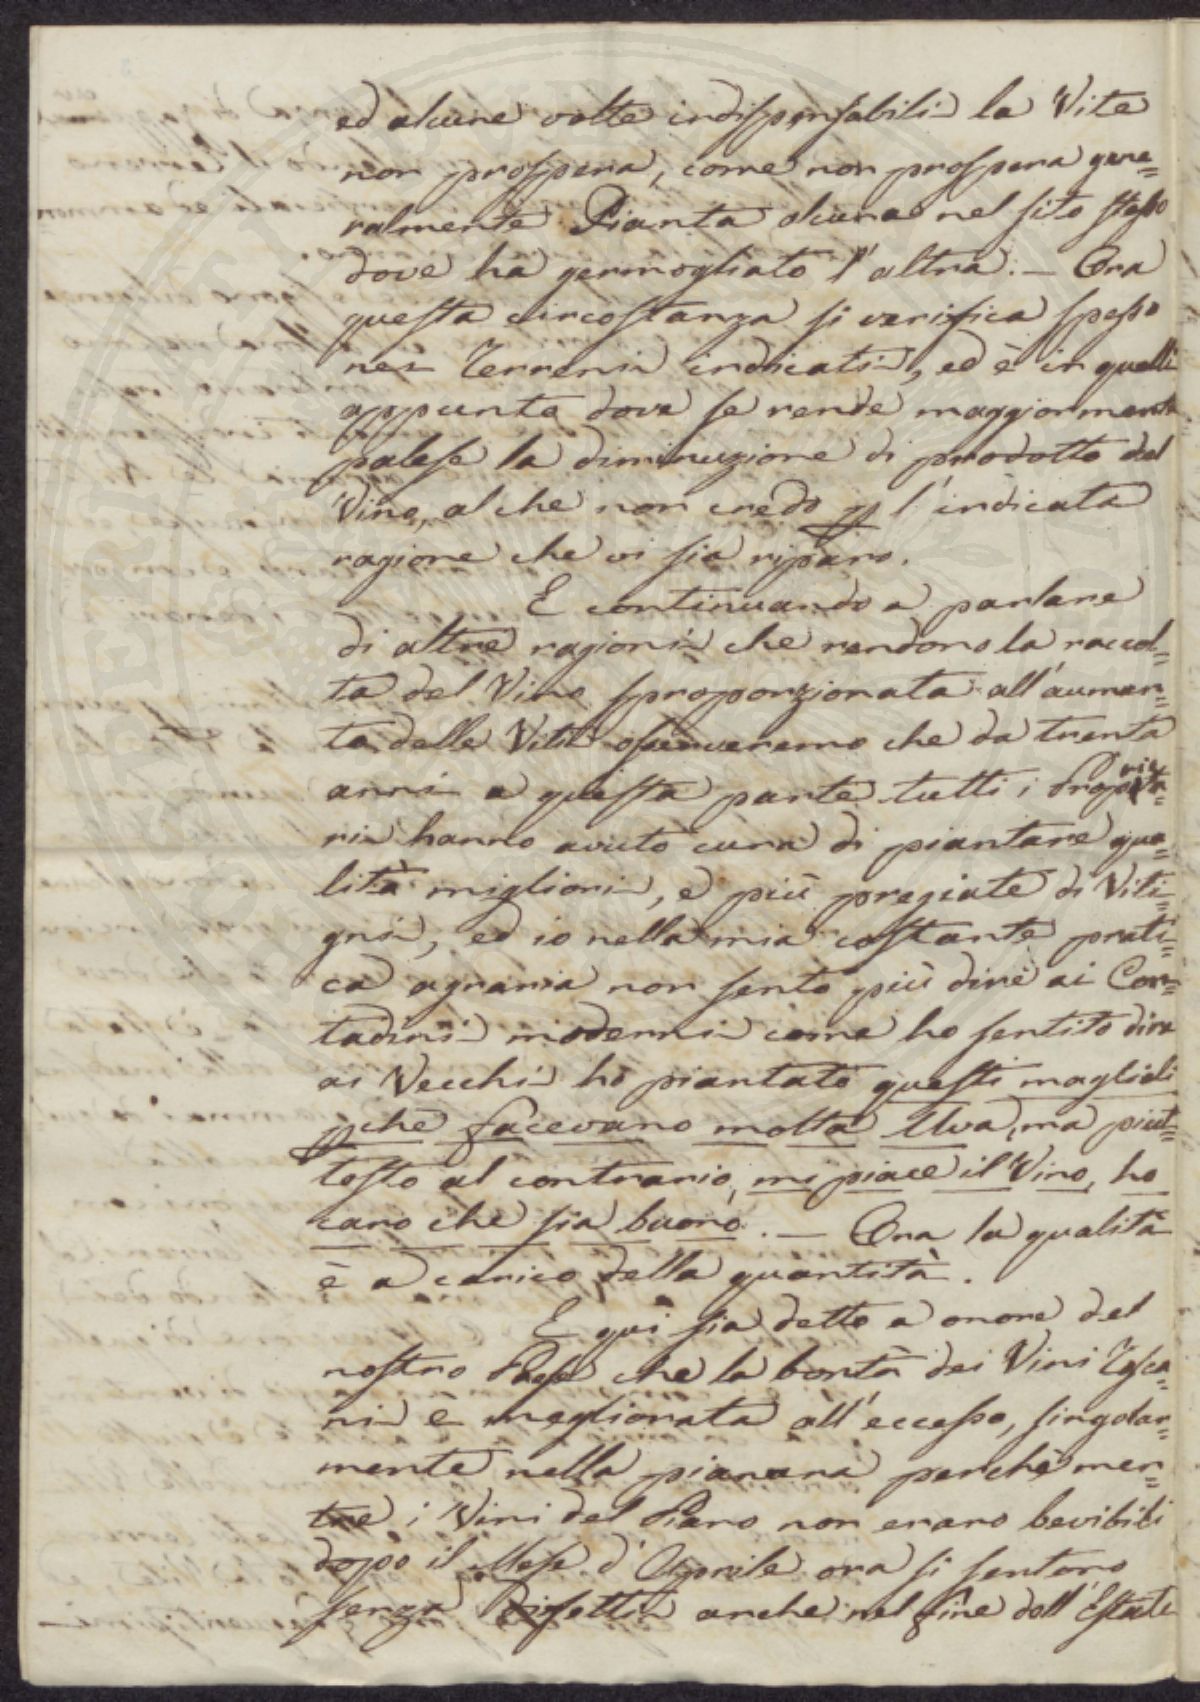 ed alcune volte indispensabili la Vite
non prospera, come non prospera gene=
ralmente Pianta alcuna nel sito stesso
dove ha germogliato l'altra. — Ora
questa circostanza si verifica spesso
nei Terreni indicati, ed è in quelli
appunto dove se rende maggiormente
palese la diminuzione di prodotto del
Vino, al che non credo p l'indicata
ragione che vi sia riparo.
E continuando a parlare
di altre ragioni che rendono la raccol=
ta del Vino sproporzionata all'aumen=
to delle Viti osserveremo che da trenta
anni a questa parte tutti i
rii hanno avuto cura di piantare qua=
lità migliori, e più pregiate di Viti=
gni, ed io nella mia costante prati=
ca agraria non sento più dire ai Con=
tadini moderni come ho sentito dire
ai Vecchi ho piantato questi maglioli
pche facevano molta Uva, ma piut=
tosto al contrario, mi piace il Vino, ho
caro che sia buono. — Ora la qualità
è a carico della quantità.
E qui sia detto a onore del
nostro Paese che la bontà dei Vini Tosca=
ni è megliorata all'eccesso, singolar=
mente nella pianura perchè men=
tre i Vini del Piano non erano bevibili
dopo il Mese d'Aprile ora si sentono
senza difetti anche nel fine dell'Estate